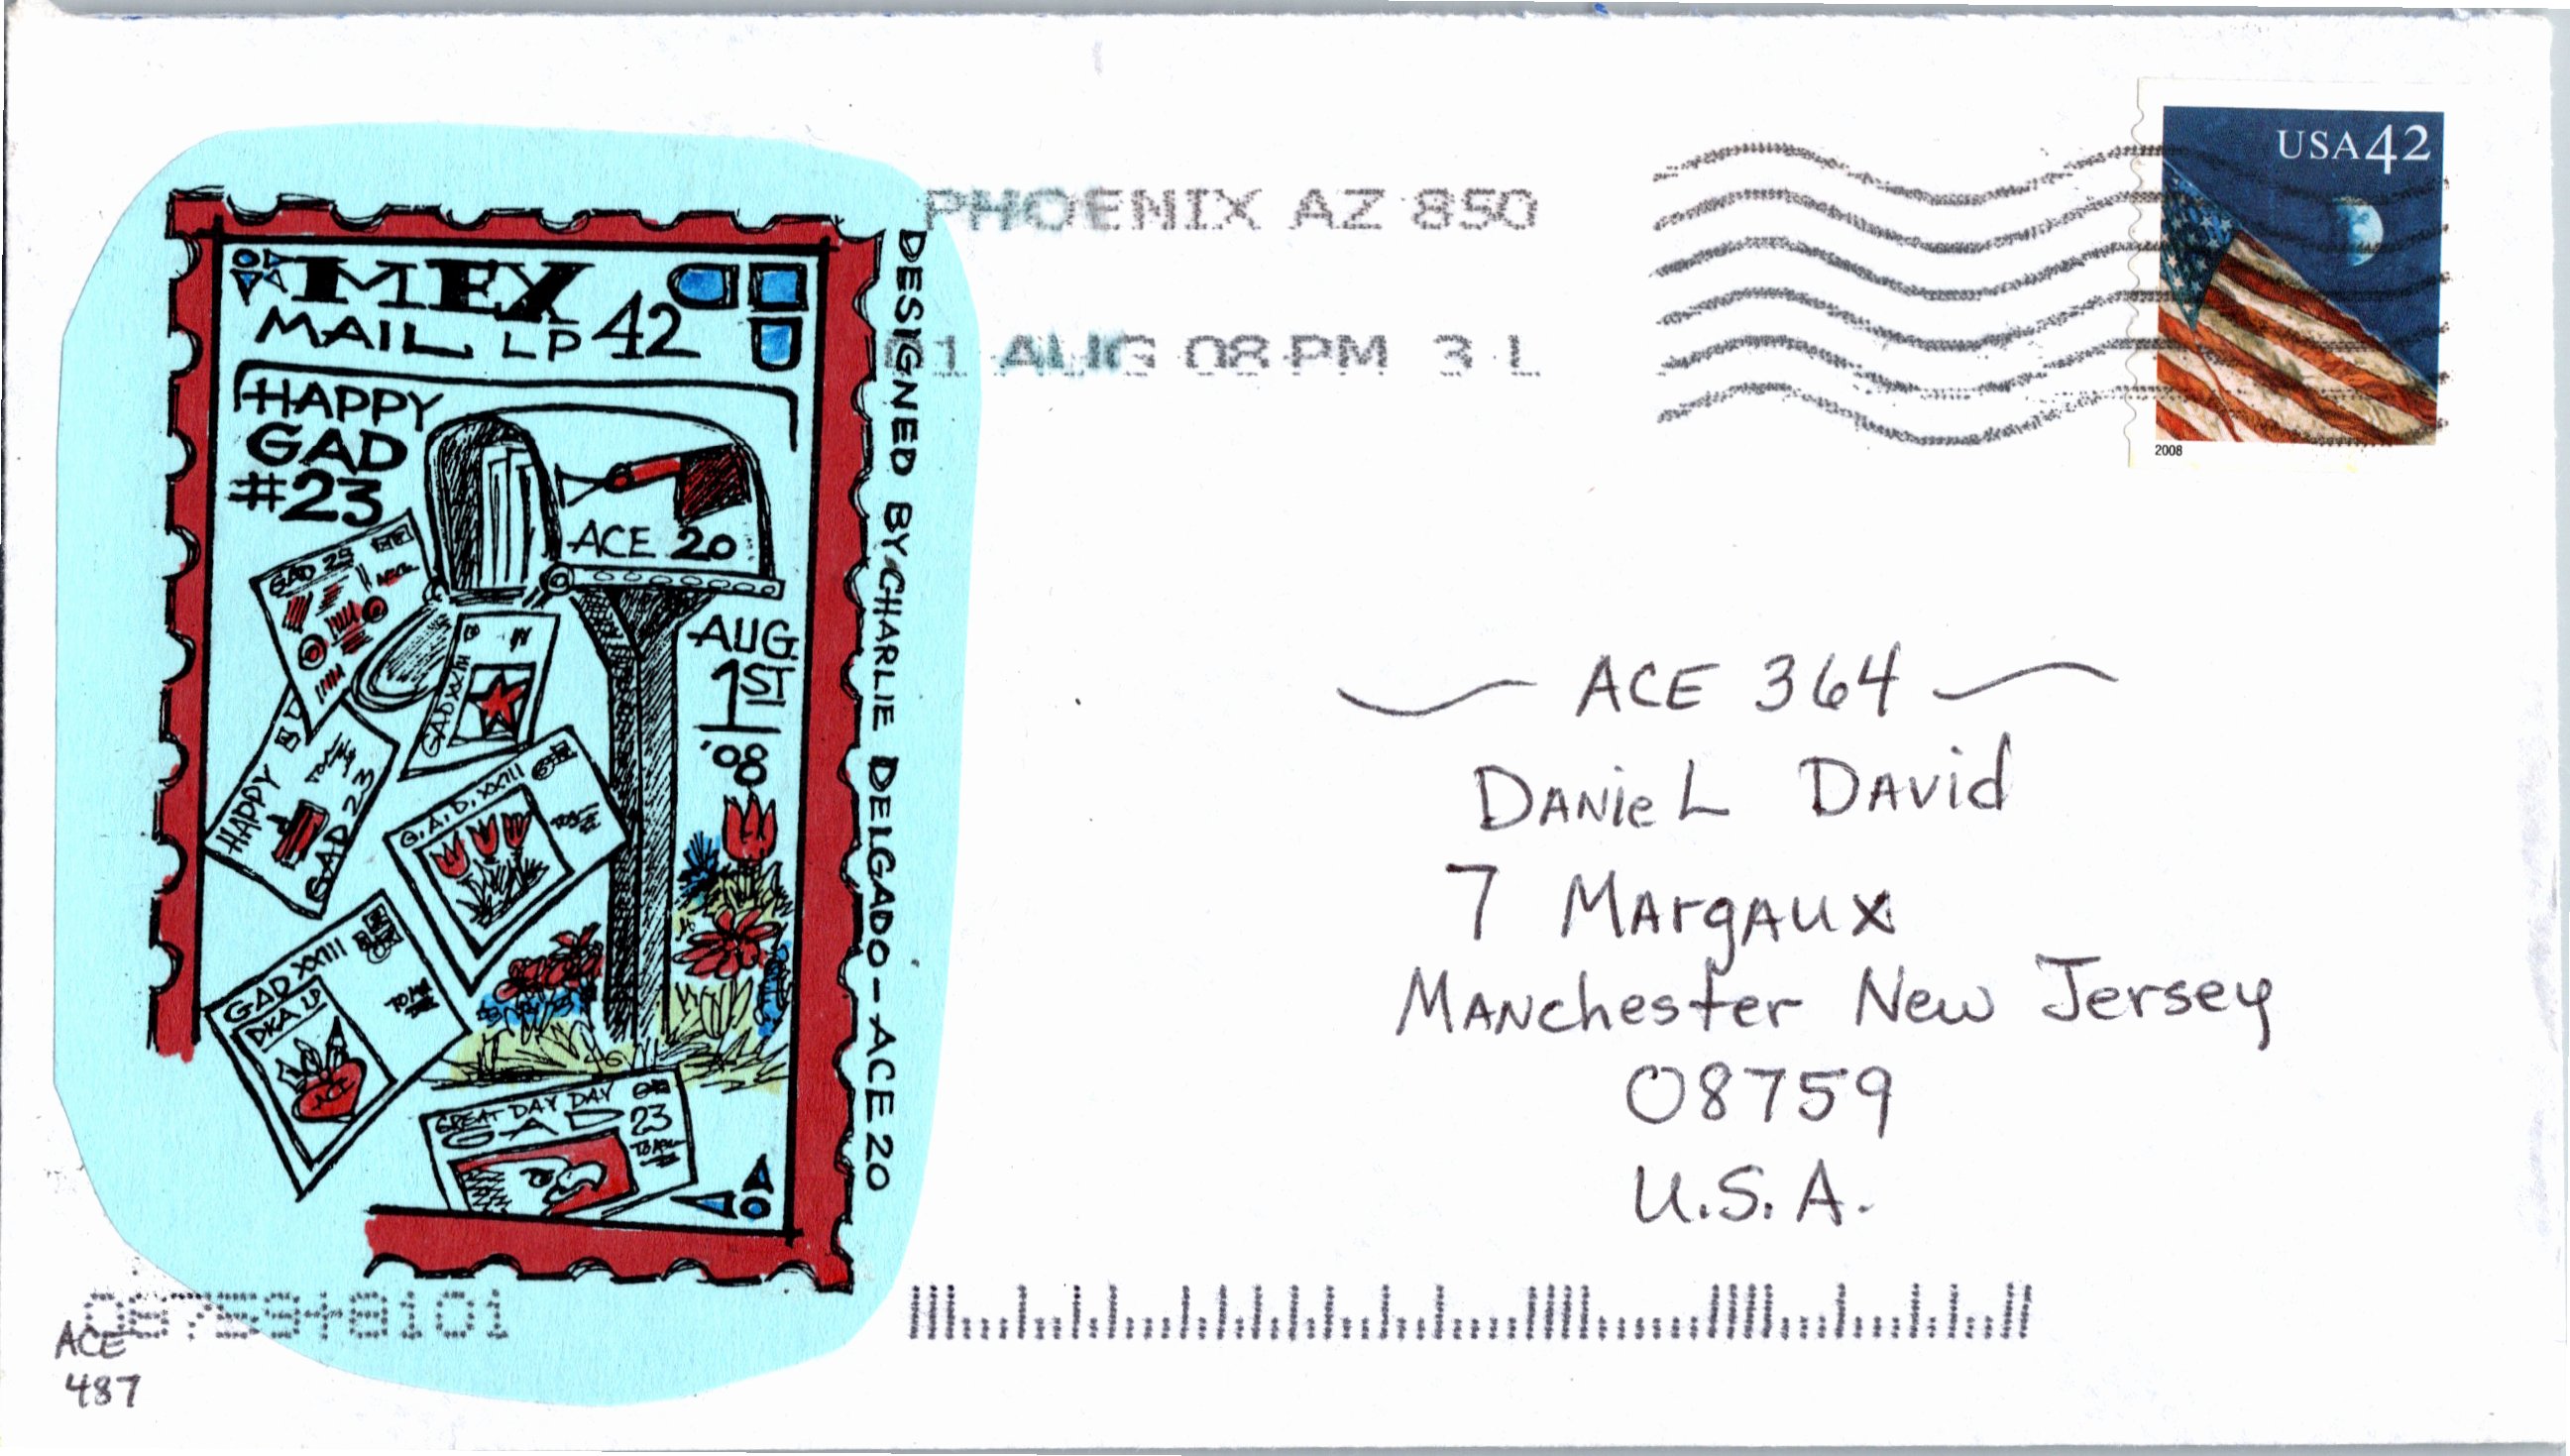 MEX
MAIL LP 42
HAPPY
GAD
#23
ACE 20
AUG.
1ST
'08
GAD 23
GAD XXIII
HAPPY
GAD 23
G.A.D. XXIII
GAD XXIII
DKA LP
GREAT DAY DAY
GAD
23
DESIGNED BY CHARLIE DELGADO - ACE 20
PHOENIX AZ 850
01 AUG 08 PM 3 L
USA 42
2008
ACE 364
DANieL DAVid
7 MArgAux
MANchester New Jersey
08759
U.S.A.
0875948101
ACE
487